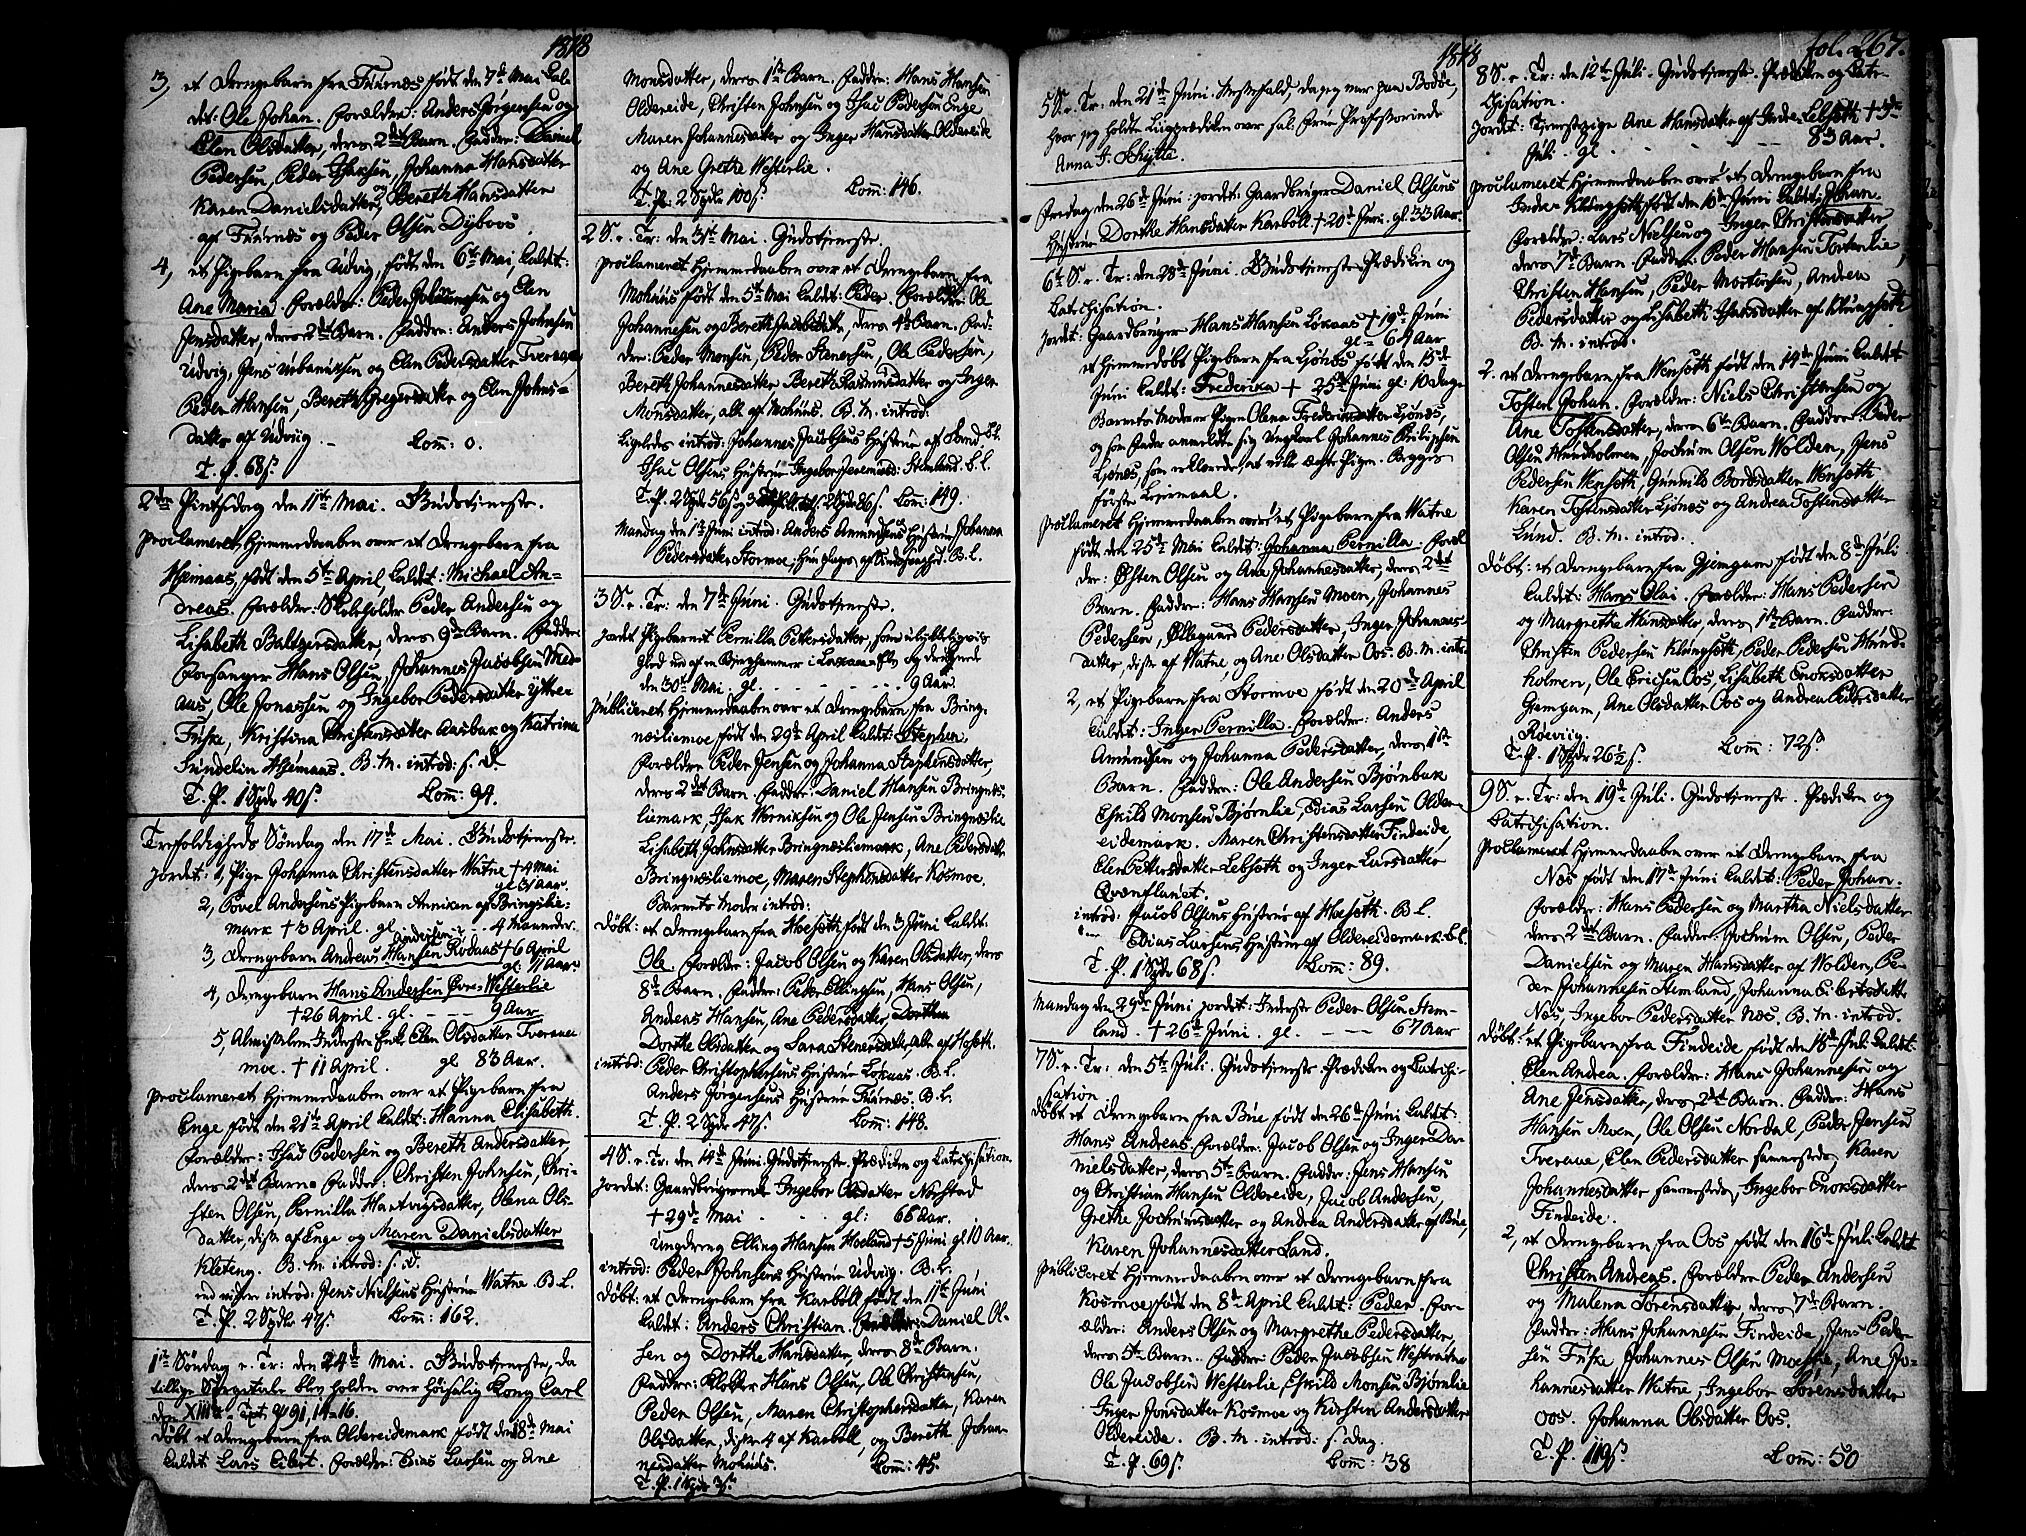 1818
3, et Drengebarn fra Furnæs født den 7de Mai kal-
det: Ole Johan. Forældre: Anders Jørgensen og
Elen Olsdatter, deres 2det Barn. Faddre: Daniel
Pedersen, Peder Isaksen, Johanna Hansdatter
Karen Danielsdatter, Bereth Hansdatter
af Furnæs og Peder Olsen Dyboos.
4, et Pigebarn fra Udvig, født den 6te Mai, kaldet:
Ane Maria Forældre: Peder Johnsen og Elen
Jensdatter, deres 2det Barn. Faddre: Anders Johnsen
Udvig, Jens Urbanusen og Elen Pedersdatter Tveraae,
Peder Hansen, Bereth Gregersdatter og Elen Johns-
datter af Udvig. Comm: 0.
T. P. 68 s.
2den Pintsedag den 11te Mai. Gudstjeneste.
proclameret Hjemmedaaben over et Drengebarn fra
Hjemaas, født den 5te April, kaldet: Michael An-
dreas. Forældre: Skoleholder Peder Andersen og
Lisabeth Baltzersdatter, deres 9de Barn. Faddre:
Forsanger Hans Olsen, Johannes Jacobsen Med-
aas, Ole Jonassen og Ingebor Pedersdatter Yttre-
Fuske, Kristina Christensdatter Aasbak og Katrina
Fundelin Hjemaas. B. M. introd: s. D.
T. P. 1 Spdr 40 s. Comm: 94.
Trefoldigheds Søndag den 17de Mai. Gudstjeneste.
Jordet: 1, Pige Johanna Christensdatter Watne + 4 Mai
gl 31 Aar.
2, Povel Andersens Pigebarn Anniken af Bringslie-
mark + 3 April. gl 4 Maaneder.
3, Drengebarn Andreas Hansen Rødaas + 6 April
gl: 11 Aar.
4, Drengebarn Hans Andersen Øvre-Westerlie
+ 26 April. gl. - - - 9 Aar
5, Almisselem Inderste Enke Elen Olsdatter Tveraae
moe. + 11 April. gl 83 Aar.
proclameret Hjemmedaaben over et Pigebarn fra
Enge født den 21de April kaldet: Hanna Elisabeth.
Forældre: Isac Pedersen og Bereth Andersdatter,
deres 2det Barn. Faddre: Christen Johnsen, Chri-
sten Olsen, Pernilla Hartvigsdatter, Olena Ols-
datter, disse af Enge og Maren Danielsdatter
Kleteng. B. M. introd: s. D.
T. P. 2 Spdr 47 s. Comm: 162.
1ste Søndag e. Tr: den 24de Mai. Gudstjeneste, da
tillige Sørgetale blev holden over Høisalig Kong Carl
den XIIIde. Text. ψ 91, 14-16.
Døbt et Drengebarn fra Oldereidemark født den 8de Mai
kaldet Lars Eibert. Forældre: Tobias Larsen og Ane
Monsdatter, deres 1ste Barn. Faddre: Hans Hansen
Oldereide, Christen Johnsen og Isac Pedersen Enge
Maren Johannesdatter og Inger Hansdatter Oldereide
og Ane Grethe Westerlie.
T. P. 2 Spdr 100 s. Comm: 146.
2 S. e. Tr: den 31te Mai. Gudstjeneste.
proclameret Hjemmedaaben over et Drengebarn fra
Mohuus født den 5te Mai kaldet: Peder. Forældre: Ole
Johannesen og Bereth Jacobsdatter, deres 4de Barn. Fad-
dre: Peder Monsen, Peder Stenersen, Ole Pedersen,
Bereth Johannesdatter Bereth Rasmusdatter og Inger
Monsdatter, alle af Mohuus. B. M. introd:
Ligeledes introd: Johannes Jacobsens Hustrue af Land B. L.
Isac Olsens Hustrue Ingebor Jeremiasd: Stemland. B. L.
Comm: 149.
Mandag den 1ste Juni introd: Anders Amundsens Hustrue Johanna
Pedersdatter Stormoe, B. L.
3 S. e. Tr: den 7de Juni. Gudstjeneste.
Jordet Pigebarnet Pernilla Pettersdatter, som ulykkeligviis
den 30te Mai. gl. - - - 9 Aar
publiceret Hjemmedaaben over et Drengebarn fra Bring-
næsliemoe født den 29de April kaldet: Stephen.
Forældre Peder Jensen og Johanna Stephensdatter,
deres 2det Barn. Faddre: Daniel Hansen Bringnæs-
liemark, Isak Werniksen og Ole Jensen Bringnæslie
Lisabeth Johnsdatter Bringnæsliemark, Ane Pedersdatter
Bringnæsliemoe, Maren Stephensdatter Kosmoe.
Barnets Moder introd:
Døbt: et Drengebarn fra Hoeseth født den 3 Juni kaldet.
Ole. Forældre: Jacob Olsen og Karen Olsdatter, deres
8de Barn. Faddre: Peder Ellingsen, Hans Olsen,
Andreas Hansen, Ane Pedersdatter, Dorthea
Dorthe Olsdatter og Sara Stenersdatter, alle af Hoseth.
introd: Peder Christophersens Hustrue Løkaas. B. L.
Anders Jørgensens Hustrue Furnæs. B. L.
T. P. 2 Spdr 47 s. Comm: 148.
4 S. e. Tr: den 14de Juni. Gudstjeneste. Prædiken og Catechisation.
Jordet: Gaardbrugerenke Ingebor Olsdatter Nordstad
+ 29de Mai gl: 66 Aar.
Ungdreng Elling Hansen Hoeland + 5 Juni gl 10 Aar.
introd: Peder Johnsens Hustrue Udvig. B. L.
Døbt: et Drengebarn fra Karbøll født den 11te Juni
kaldet: Anders Christian. Forældre: Daniel Ol-
sen og Dorthe Hansdatter, deres 8de Barn.
Faddre: Klokker Hans Olsen, Ole Christensen,
Peder Olsen, Maren Christophersdatter, Karen
Olsdatter, disse 4 af Karbøll, og Bereth Johan-
nesdatter Mohuus. Comm: 45.
T. P. 1 Spdr 3 s.
1818
fol. 267.
5 S. e. Tr. den 21de Juni. Messefald, da jeg var paa Bodøe,
hvor jeg holdte Liigprædiken over sal. Frue Professorinde
Anna J. Schytte.
Fredag den 26de Juni jordet: Gaardbruger Daniel Olsens
Hustrue Dorthe Hansdatter Karbøll + 20de Juni. gl. 33 Aar.
6te S. e. Tr: den 28de Juni. Gudstjeneste Prædiken og
Catechisation.
Jordet: Gaardbruger Hans Hansen Løkaas + 19de Juni
gl = 69 Aar
et hjemmedøbt Pigebarn fra Ljønes født den 15de
Juni kaldet: Frederica + 25de Juni gl: 10 Dage
Barnets Moder Pigen Olena Frederiksdatter Ljønes,
og som Fader anmeldte sig Ungkarl Johannes Philipsen
Ljønes, som erklærede, at ville ægte Pigen. Begges
første Leiermaal.
proclameret Hjemmedaaben over et Pigebarn fra Watne
født den 25de Mai kaldet: Johanna Pernilla. Foræl-
dre: Østen Olsen og Ane Johannesdatter, deres 2det
Barn. Faddre: Hans Hansen Moen, Johannes
Pedersen, Øllegaard Pedersdatter, Inger Johannes-
datter, disse af Watne, og Ane Olsdatter Oos. B. M. intr.
2, et Pigebarn fra Stormoe født den 20de April
kaldet: Inger Pernilla. Forældre: Anders
Amundsen og Johanna Pedersdatter, deres 1ste
Barn. Faddre: Ole Andersen Bjørnbak
Eskild Monsen Bjørnlie, Tobias Larsen Older-
eidemark. Maren Christensdatter Findeide,
Elen Pettersdatter Lebseth og Inger Larsdatter
Qvænflaaet.
introd: Jacob Olsens Hustrue af Hoeseth. B. L.
Tobias Larsens Hustrue af Oldereidemark. B. L.
T. P. 1 Spdr 68 s. Comm: 89.
Mandag den 29de Juni jordet: Inderst Peder Olsen Stem-
land. + 26de Juni. gl. - - - 67 Aar
7 S. e. Tr: den 5te Juli. Gudstjeneste Prædiken og Catechi-
sation
Døbt et Drengebarn fra Bue født den 26de Juni kaldet:
Hans Andreas. Forældre: Jacob Olsen og Inger Da-
nielsdatter, deres 5te Barn. Faddre: Jens Hansen
og Christian Hansen Oldereide, Jacob Andersen,
Grethe Jochumsdatter og Andrea Andersdatter af Bue,
Karen Johannesdatter Land.
publiceret Hjemmedaaben over et Drengebarn fra
Kosmoe, født den 8de April kaldet: Peder. For-
ældre: Anders Olsen og Margrethe Pedersdatter,
deres 5te Barn. Faddre: Peder Jacobsen Westvatne
Ole Jacobsen Westerlie, Eskild Monsen Bjørnlie
Inger Jonsdatter Kosmoe og Kirsten Andersdatter
Oldereide. B. M. introd: s. Dag.
T. P. 69 s. Comm: 38
8 S. e. Tr: den 12te Juli. Gudstjeneste. Prædiken og Cate-
chisation.
Jordet: Tjenestepige Ane Hansdatter af Indre Lebseth + 3de
Juli. gl - - - 83 Aar.
proclameret Hjemmedaaben over et Drengebarn fra
Indre Klungseth født den 16de Juni kaldet: Johan.
Forældre: Lars Nielsen og Inger Christensdatter
deres 7de Barn. Faddre: Peder Hansen Tortenlie,
Christen Hansen, Peder Mortensen, Andrea
Pedersdatter og Lisabeth Isaksdatter af Klungseth
B. M. introd.
2. et Drengebarn fra Wenseth født den 19de Juni kaldet
Tosten Johan. Forældre: Niels Christensen og
Ane Tostensdatter, deres 6te Barn. Faddre: Peder
Olsen Hundholmen, Jochum Olsen Wolden, Jens
Pedersen Wenseth, Gunnild Bordsdatter Wenseth
Karen Tostensdatter Ljønes og Andrea Tostensdatter
Lund. B. M. introd:
Døbt: et Drengebarn fra Gjemgam født den 8de Juli
kaldet: Hans Olai. Forældre: Hans Pedersen
og Margrethe Hansdatter, deres 1ste Barn. Faddre:
Christen Pedersen Klungseth, Peder Pedersen Hund-
holmen, Ole Ericsen Oos, Lisabeth Enoksdatter
Gjemgam, Ane Olsdatter Oos og Andrea Peersdatter
Røeviig.
T. P. 1 Spdr 26½ s. Comm: 72 s.
9 S. e. Tr: den 19de Juli. Gudstjeneste. Prædiken og
Catechisation.
proclameret Hjemmedaaben over et Drengebarn fra
Næs født den 17de Juni kaldet: Peder Johan.
Forældre: Hans Pedersen og Martha Nielsdatter
deres 2det Barn. Faddre: Jochum Olsen, Peder
Danielsen og Maren Hansdatter af Wolden, Pe-
der Johannesen Stemland, Johanna Eibertsdatter
Næs, Ingebor Pedersdatter Næs. B. M. introd.
Døbt: et Pigebarn fra Findeide født den 18de Juli kaldet:
Elen Andrea. Forældre: Hans Johannesen og
Ane Jensdatter, deres 2det Barn. Faddre: Hans
Hansen Moen, Ole Olsen Nordal, Peder Jensen
Tveraae, Elen Pedersdatter sammesteds, Karen
Johannesdatter sammesteds, Ingebor Enoksdatter
Findeide.
2, et Drengebarn fra Oos født den 16de Juli kaldet
Christen Andreas. Forældre Peder Andersen
og Malena Sørensdatter, deres 7de Barn.
Faddre: Hans Johannesen Findeide, Jens Peder-
sen Fuske, Johannes Olsen Moeshe, Ane Jo-
hannesdatter Watne, Ingebor Sørensdatter
Oos. Johanna Olsdatter Oos.
T. P. 119 s. Comm: 50